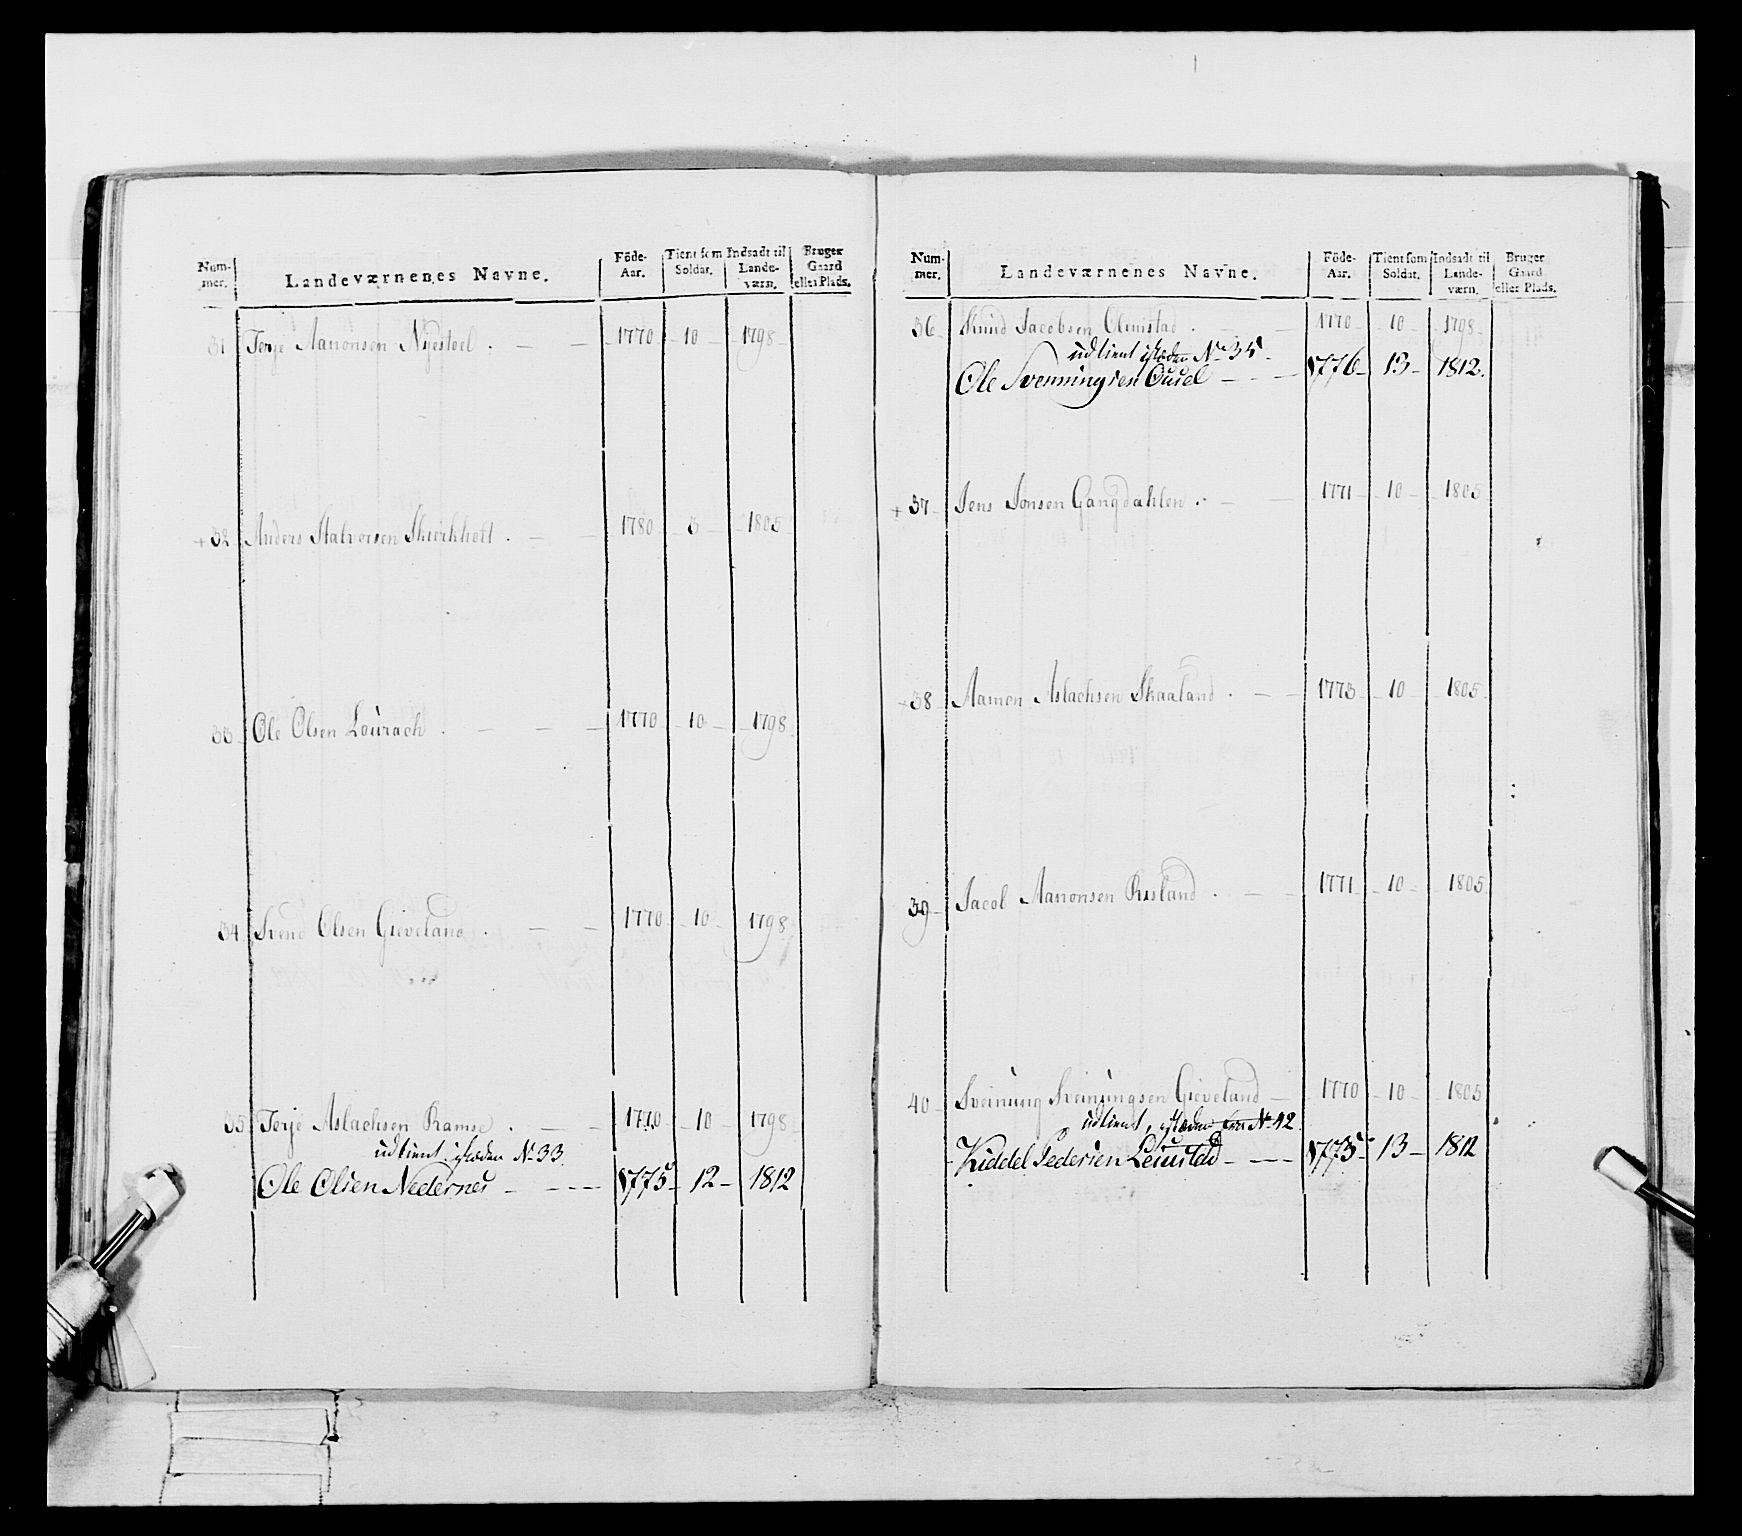 Num-mer. Landeværnenes Navne. Föde-Aar. Tient som Soldat. Indsadt til Lande-værn. Bruger Gaard eller Plads.
31 Terje Aanonsen Nyesteel . — — 1770 - 10 - 1798
+ 32 Anders Stalvorsen Skierkholt . — — 1780 - 3 - 1805
33 Ole Olsen Lourach . — — — 1770 - 10 - 1798
34 Svend Olsen Gieveland . — — 1770 - 10 - 1798
35 Terje Aslachsen Ramse . — — 1770 - 10 - 1798
udtient, istæden No 33.
Ole Olsen Nedernes — — — 1775 - 12 - 1812
Num-mer. Landeværnenes Navne. Föde-Aar. Tient som Soldat. Indsadt til Lande-værn. Bruger Gaard eller Plads.
36 Knud Jacobsen Olmistad . — — 1770 - 10 - 1798
udtient istæden No 35.
Ole Svenningsen Ousel — — — 1776 - 13 - 1812.
+ 37 Jens Jonsen Gangdahlen . — — 1771 - 10 - 1805
+ 38 Aamon Aslachsen Skaaland . — — 1773 - 10 - 1805
39 Jacob Aanonsen Risland . — — 1771 - 10 - 1805
40 Sveinung Sveinungsen Gieveland — 1770 - 10 - 1805
udtient, istæden fra No 42.
Kiddel Pedersen Leiustad — — — 1775 - 13 - 1812